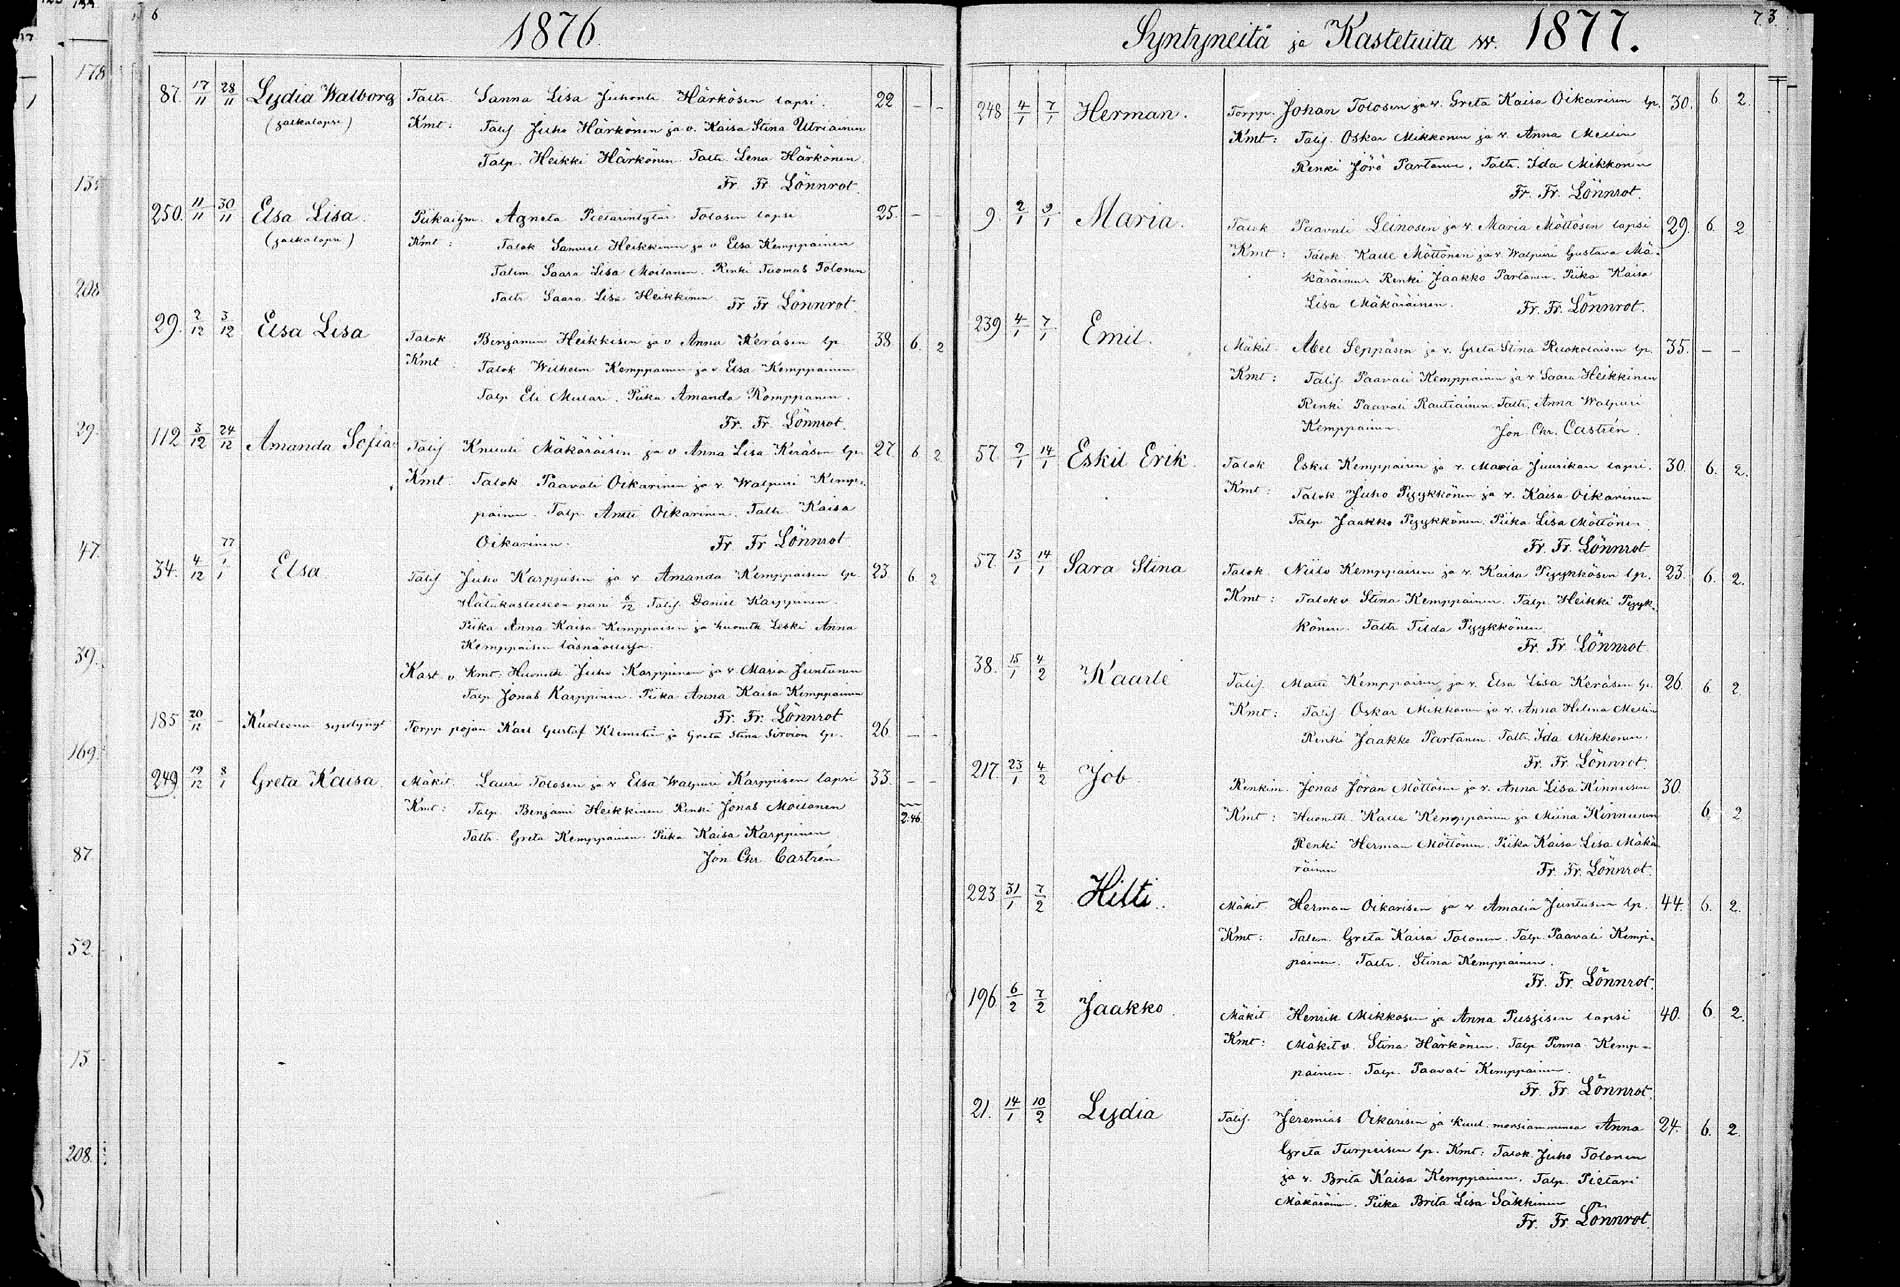 6
1876.
87. 17/11 28/11 Lydia Walborg Taltr. Sanna Lisa Juhontr Härkösen lapsi. 22 - -
(jalkalapsi) Kmt: Talij Juho Härkönen ja v. Kaisa Stina Utriainen
Talp. Heikki Härkönen Taltr. Lena Härkönen
Fr. Fr. Lönnrot.
250. 11/11 30/11 Elsa Lisa. Agneta Pietarintytär Tolosen lapsi 25. - -
(jalkalapsi) Kmt: Talok Samuel Heikkinen ja v Elsa Kemppainen
Saara Lisa Moilanen. Renki Tuomas Tolonen
Taltr Saara Lisa Heikkinen. Fr. Fr. Lönnrot.
29. 2/12 3/12 Elsa Lisa Talok Benjamin Heikkisen ja v Anna Keräsen lp. 38. 6. 2
Kmt: Talok Wilhelm Kemppainen ja v Elsa Kemppainen
Talp Eli Mulari. Piika Amanda Komppanen.
Fr. Fr. Lönnrot.
112 3/12 24/12 Amanda Sofia Talij Knuuti Mäkäräisen ja v Anna Lisa Keräsen lp. 27. 6 2
Kmt. Talok Paavali Oikarinen ja v. Walpuri Kemp-
painen. Talp. Antti Oikarinen. Taltr. Kaisa
Oikarinen. Fr. Fr Lönnrot
77
34. 4/12 1/1 Elsa. Talij Juho Karppisen ja v. Amanda Kemppaisen lp. 23. 6 2
Hätäkasteeseen pani 6/12 Talij. Daniel Karppinen.
Piika Anna Kaisa Kemppaisen ja huonmtk Leski Anna
Kemppaisen läsnäollessa.
Kast v kmt. Huonmtk Juho Karppinen ja v. Maria Juntunen
Talp Jonas Karppinen. Piika Anna Kaisa Kemppainen
Fr. Fr. Lönnrot
185 20/12 - Kuolleena syntynyt Torpp pojan Karl Gustaf Klemetin ja Greta Stina Sirvion lp. 26 - -
249. 19/12 8/1 Greta Kaisa. Mäkit. Lauri Tolosen ja v Elsa Walpuri Karppisen lapsi 33. - -
Kmt: Talp. Benjami Heikkinen Renki Jonas Moilanen 2.46.
Taltr. Greta Kemppainen. Piika Kaisa Karppinen
Jon Chr Castrén
178
29.
47.
39.
169.
87
52.
13
208.
73.
Syntyneitä ja Kastetuita w. 1877.
248 4/1 7/1 Herman. Torpp. Johan Tolosen ja v. Greta Kaisa Oikarisen lp. 30. 6. 2.
Kmt: Talij. Oskar Mikkonen ja v. Anna Mellin
Renki Jörö Partanen. Taltr. Ida Mikkonen
Fr. Fr. Lönnrot.
9. 2/1 9/1 Maria. Talok Paavali Leinosen ja v. Maria Möttösen lapsi 29. 6. 2
Kmt: Talok Kalle Möttönen ja v. Walpuri Gustava Mä-
käräinen. Renki Jaakko Partanen. Piika Kaisa
Lisa Mäkäräinen. Fr. Fr. Lönnrot.
239 4/1 7/1 Emil. Mäkit. Abel Seppäsen ja v. Greta Stina Ruokolaisen lp. 35. - -
Kmt: Talij. Paavali Kemppainen ja v Saara Heikkinen
Renki Paavali Rautiainen. Taltr. Anna Walpuri
Kemppainen. Jon. Chr. Castrén.
57. 9/1 14/1 Eskil Erik. Talok Eskel Kemppaisen ja v. Maria Juurikan lapsi. 30. 6. 2.
Kmt: Talok Juho Pyykkönen ja v. Kaisa Oikarinen
Talp Jaakko Pyykkönen. Piika Lisa Möttönen
Fr. Fr. Lönnrot
57. 13/1 14/1 Sara Stina Talok. Niilo Kemppaisen ja v. Kaisa Pyykkösen lp. 23. 6. 2.
Kmt: Talok v Stina Kemppainen. Talp. Heikki Pyyk-
könen. Taltr Tilda Pyykkönen.
Fr. Fr. Lönnrot
38. 15/1 4/2 Kaarle Talij. Matti Kemppaisen ja v. Elsa Lisa Keräsen lp. 26. 6 2
Kmt: Talij. Oskar Mikkonen ja v. Anna Helena Mellin
Renki Jaakko Partanen. Taltr. Ida Mikkonen.
Fr. Fr. Lönnrot.
217. 23/1 4/2 Job Renkim. Jonas Jöran Möttösen ja v. Anna Lisa Kinnusen 30.
Kmt: Huonmtk Kalle Kemppainen ja Miina Kinnunen 6. 2
Renki Herman Möttönen. Piika Kaisa Lisa Mäkä-
räinen Fr. Fr. Lönnrot.
223 31/1 7/2 Hilti. Mäkit. Herman Oikarisen ja v Amalia Juntusen lp. 44. 6. 2.
Kmt: Talem. Greta Kaisa Tolonen. Talp. Paavali Kemp-
painen. Taltr. Stina Kemppainen.
Fr. Fr. Lönnrot.
196 6/2 7/2 Jaakko. Mäkit Henrik Mikkosen ja Anna lapsi 40. 6. 2.
Kmt: Mäkit v. Stina Härkönen. Talp Pinna Kemp-
painen. Talp. Paavali Kemppainen.
Fr. Fr. Lönnrot.
21. 14/1 10/2 Lydia Talij. Jeremias Oikarisen ja kuul. morsiammensa Anna 24. 6. 2.
Greta Turpeisen lp. Kmt: Talok. Juho Tolonen
ja v. Brita Kaisa Kemppainen. Talp. Pietari
Mäkäräin. Piika Brita Lisa Säkkinen
Fr. Fr. Lönnrot.